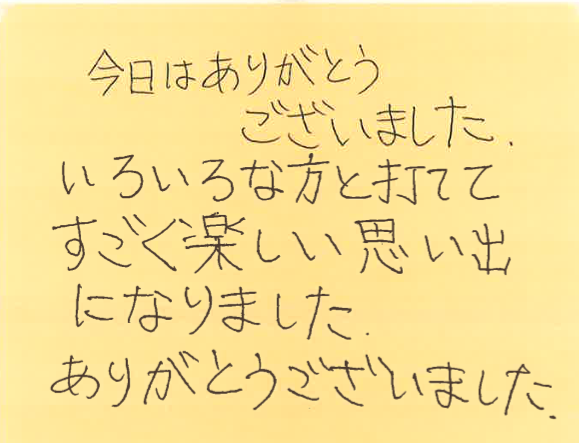 今日はありがとう
ございました.
いろいろな方と打てて
すごく楽しい思い出
になりました.
ありがとうございました.